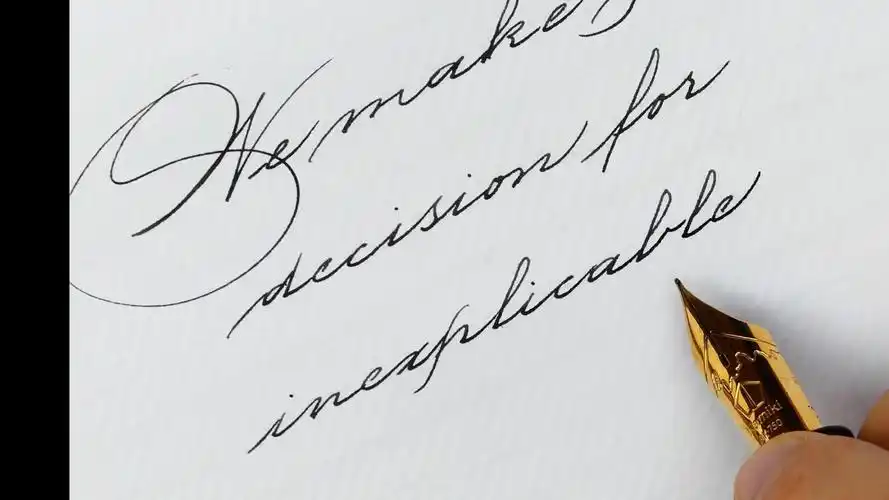 We make
decision for
inexplicable
750